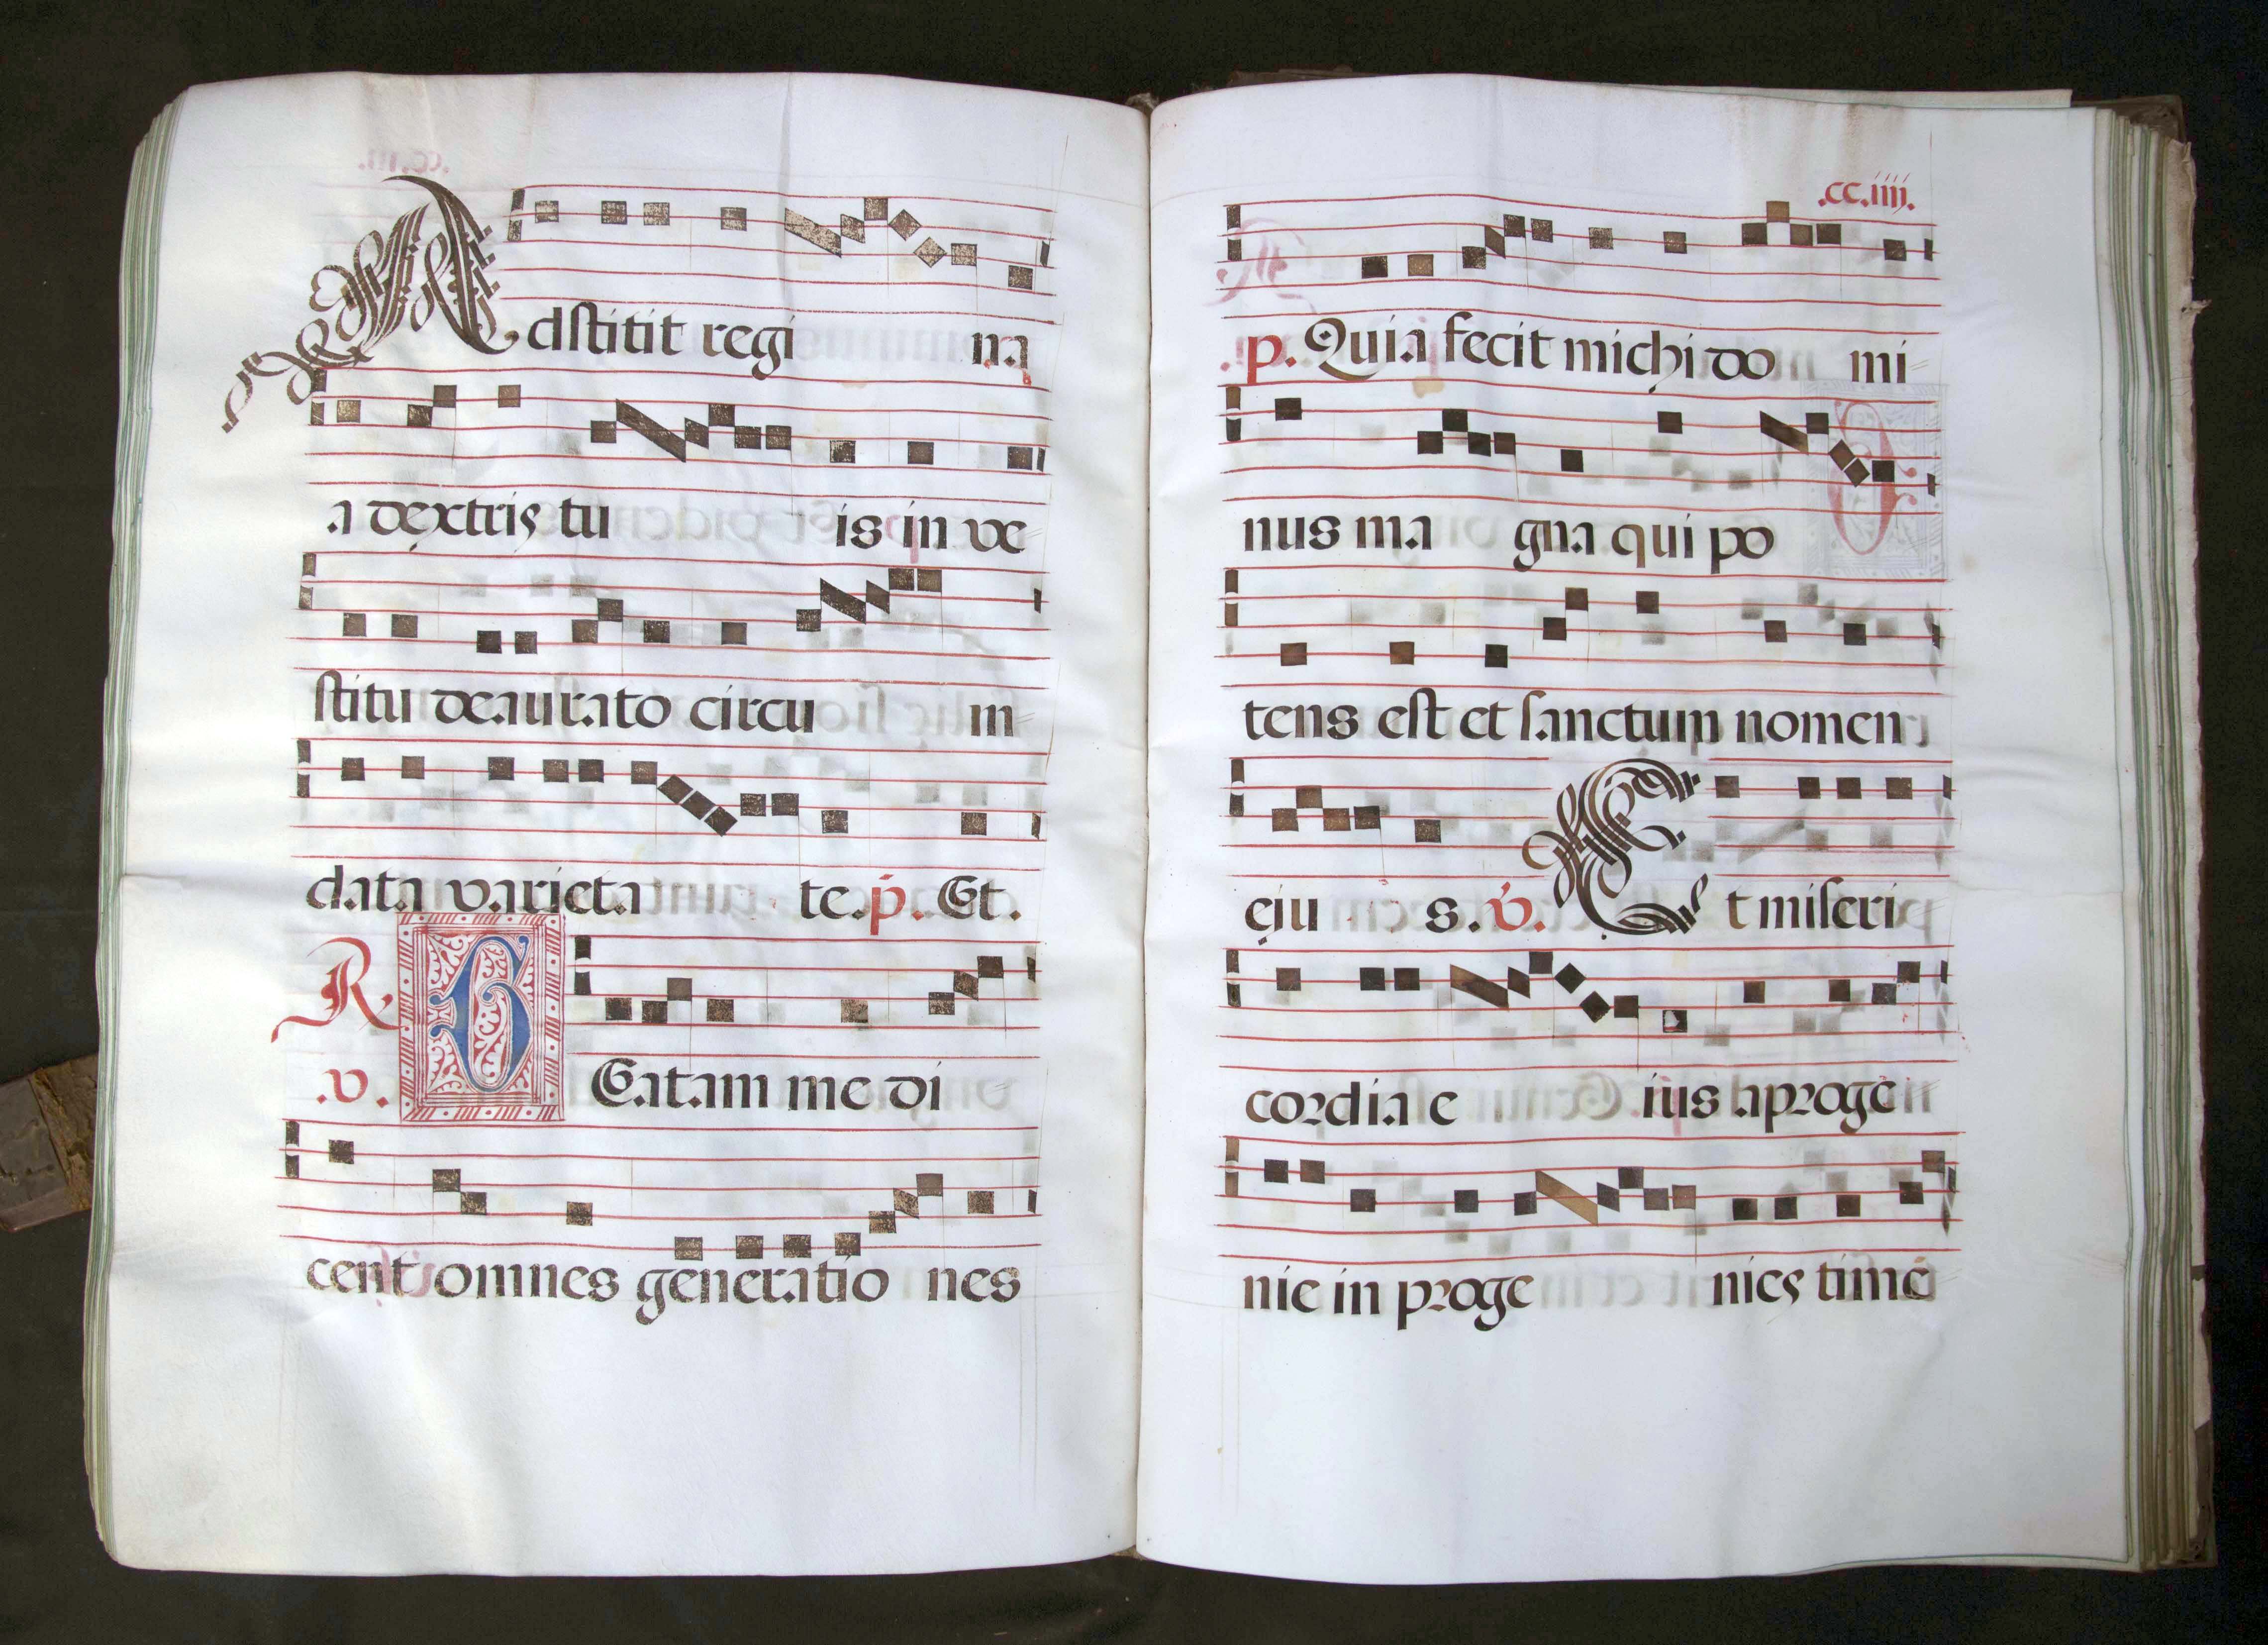 Adstitit regi na
a dextris tu is in ve
stitu deaurato circu m
data varieta te. p. Et.
R.
.v. BEatam me di
cent omnes generatio nes
.cc.iiii.
.p. Quia fecit michi do mi
nus ma gna qui po
tens est et sanctum nomen
eiu s. v. Et miseri
cordia e ius a proge
nie in proge nies time